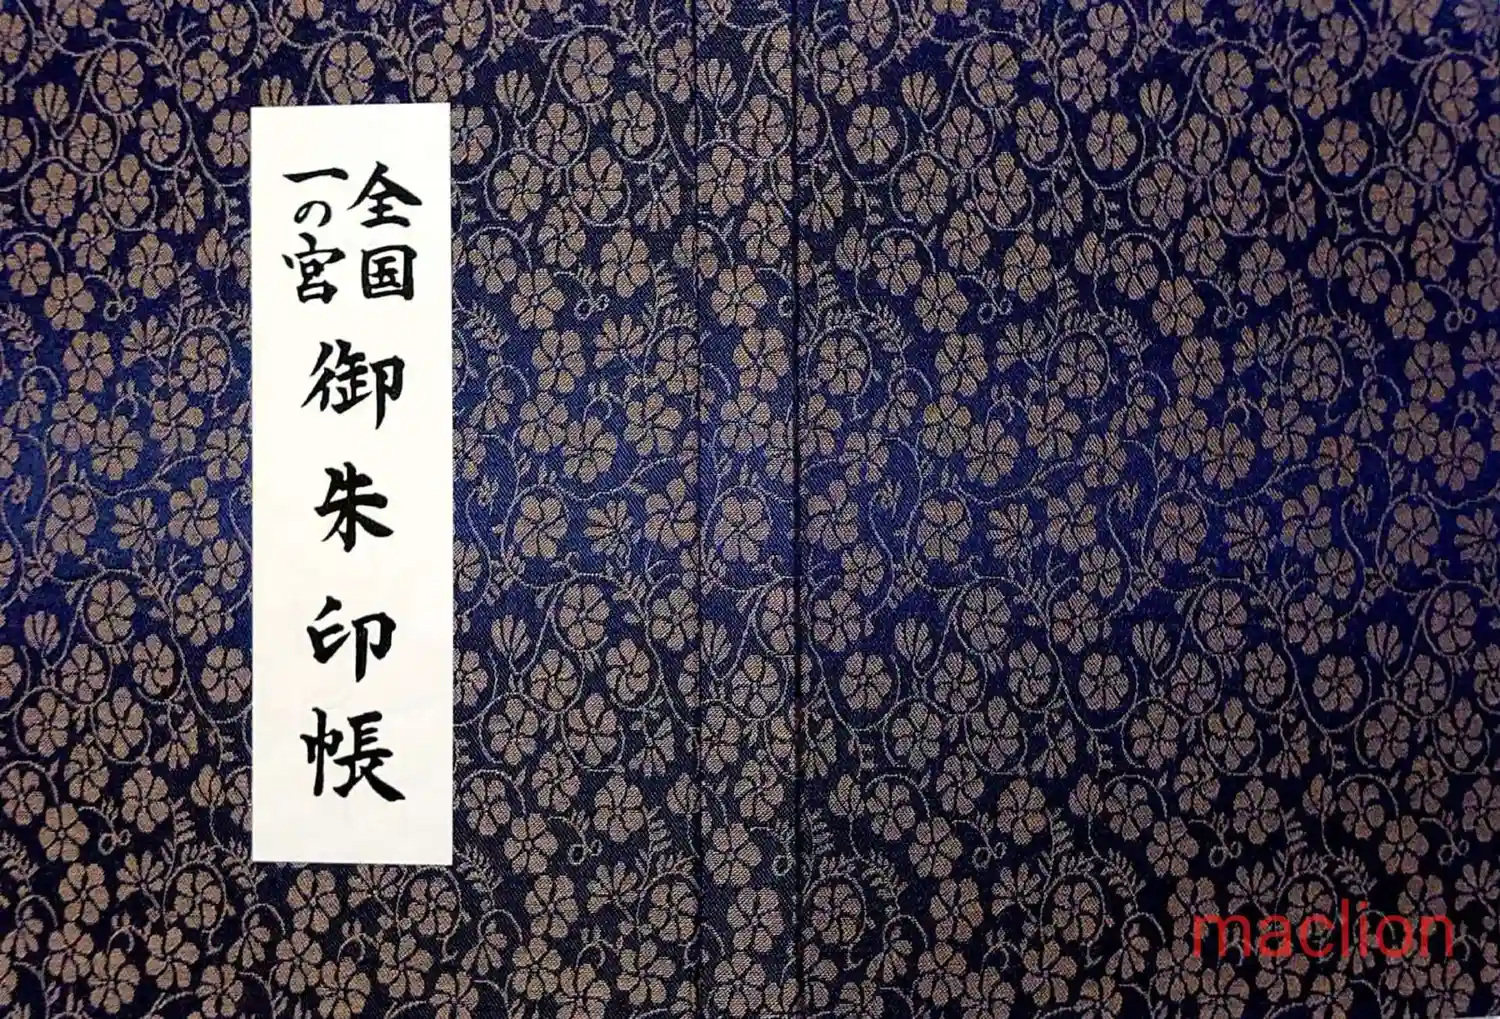 全国
一の宮
御朱印帳
maclion